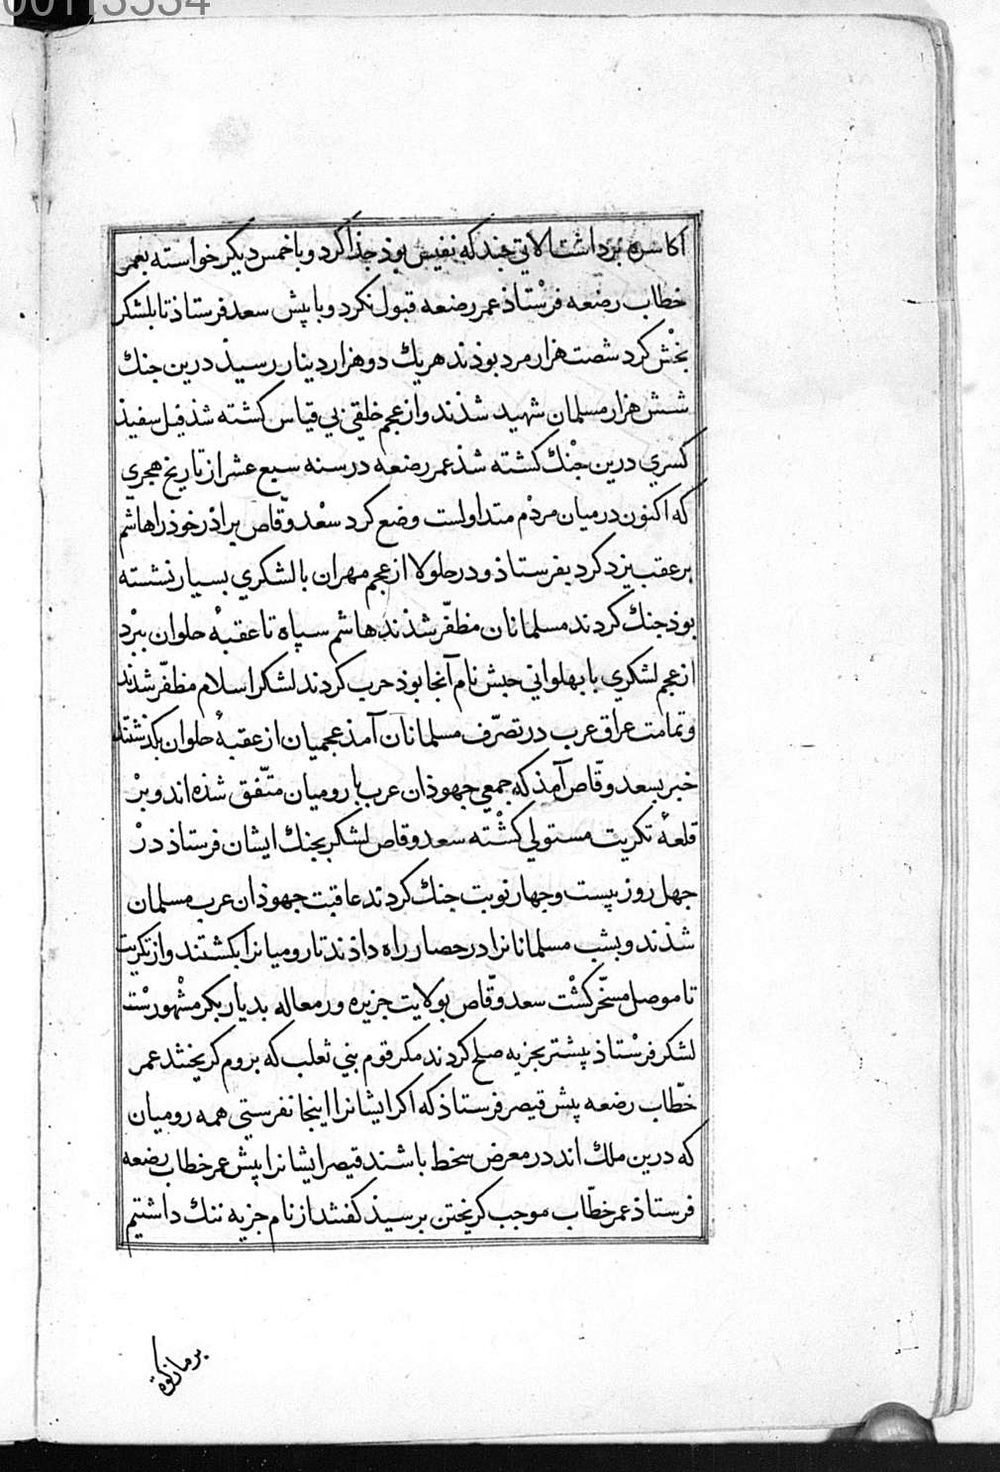 00113534
اکاسره برداشت الاتی جند که نفیس بوذ جذا کرد و با خمس دیکر خواسته بعمر
خطاب رضعه فرستاذ عمر رضعه قبول نکرد و با پیش سعد فرستاذ تا بلشکر
بخش کرد شصت هزار مرد بوذند هریك دو هزار دینار رسیذ درین جنك
شش هزار مسلمان شهید شذند و از عجم خلقی بی قیاس کشته شذ فیل سفیذ
کسری درین جنك کشته شذ عمر رضعه در سنه سبع عشر از تاریخ هجری
که اکنون در میان مردم متداولست وضع کرد سعد وقاص براذر خوذ را هاشم
بر عقب یزدکرد بفرستاذ و در جلولا از عجم مهران با لشکری بسیار نشسته
بوذ جنك کردند مسلمانان مظفر شذند هاشم سپاه تا عقبهٔ حلوان ببرد
از عجم لشکری با بهلوانی حبش نام آنجا بوذ حرب کردند لشکر اسلام مظفر شذند
و تمامت عراق عرب در تصرف مسلمانان آمذ عجمیان از عقبهٔ حلوان بکذشتند
خبر بسعد وقاص آمذ که جمعی جهوذان عرب با رومیان متفق شذه اند و بر
قلعهٔ تکریت مستولی کشته سعد وقاص لشکر بجنك ایشان فرستاذ در
جهل روز بیست و جهار نوبت جنك کردند عاقبت جهوذان عرب مسلمان
شذند و بشب مسلمانانرا در حصار راه داذند تا رومیانرا بکشتند و از تکریت
تا موصل مسخر کشت سعد وقاص بولایت جزیره و رمعاله بدیار بکر مشهورست
لشکر فرستاذ پیشتر بجزیه صلح کردند مکر قوم بنی ثعلب که بروم کریختند عمر
خطاب رضعه پیش قیصر فرستاذ که اکر ایشانرا اینجا نفرستی همه رومیان
که درین ملك اند در معرض سخط باشند قیصر ایشانرا پیش عمر خطاب رضعه
فرستاذ عمر خطاب موجب کریختن برسیذ کفتند از نام جزیه ننك داشتیم
بر ما زکوة